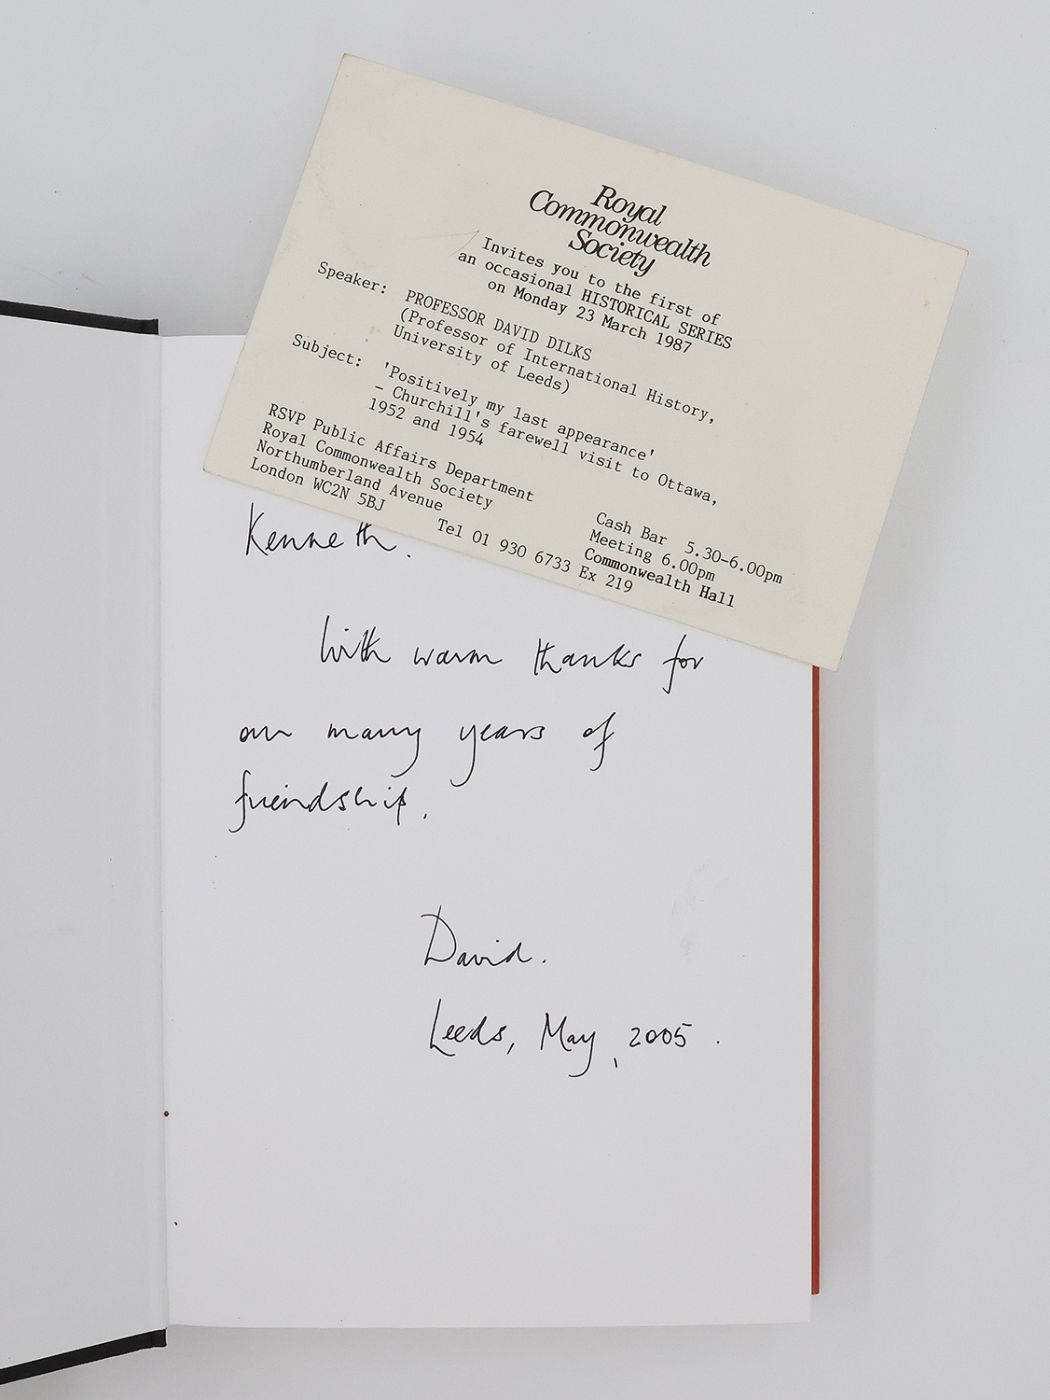 Royal
Commonwealth
Society
Invites you to the first of
an occasional HISTORICAL SERIES
on Monday 23 March 1987
Speaker: PROFESSOR DAVID DILKS
(Professor of International History,
University of Leeds)
Subject: 'Positively my last appearance'
- Churchill's farewell visit to Ottawa,
1952 and 1954
RSVP Public Affairs Department
Royal Commonwealth Society
Northumberland Avenue
London WC2N 5BJ
Tel 01 930 6733 Ex 219
Cash Bar 5.30-6.00pm
Meeting 6.00pm
Commonwealth Hall
Kenneth.
With warm thanks for
our many years of
friendship.
David.
Leeds, May, 2005.